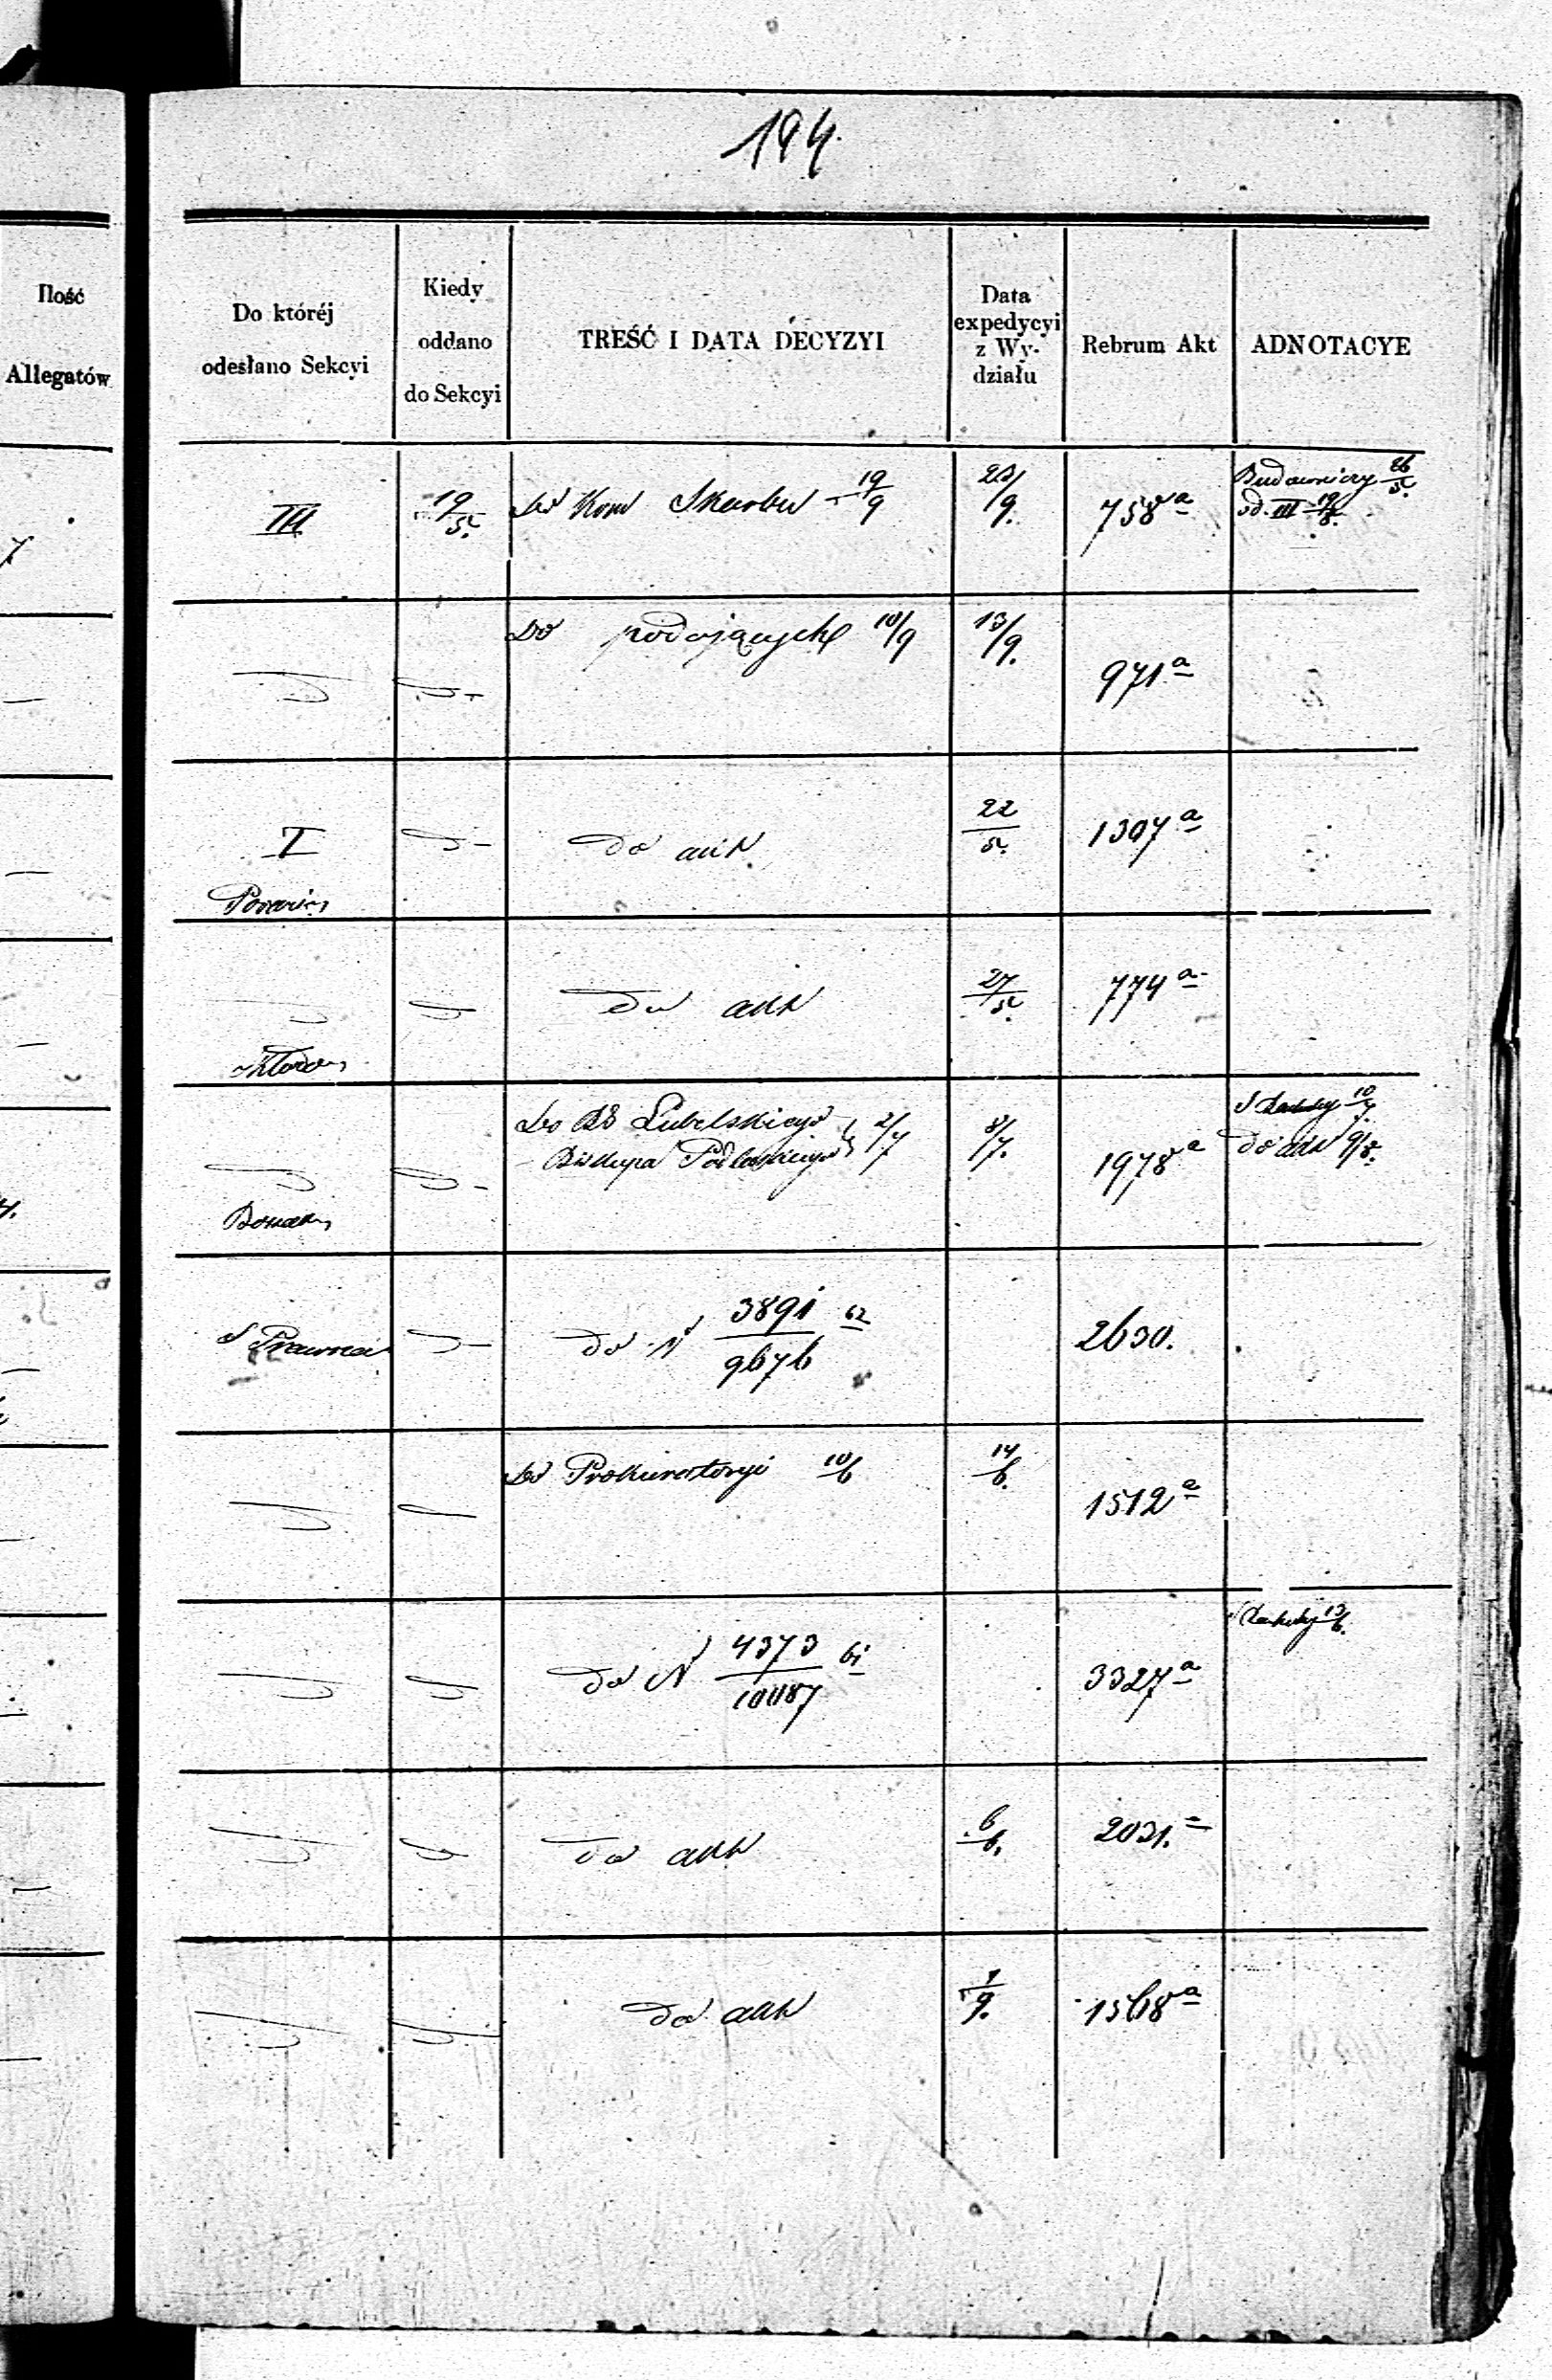 194.
Ilość
Allegatów
Do któréj
odesłano Sekcyi
Kiedy
oddano
do Sekcyi
TREŚĆ I DATA DECYZYI
Data
expedycyi
z Wy-
działu
Rebrum Akt
ADNOTACYE
III 19/5. Do Kom Skarbu 19/9 23/9. 758a Budowniczy 26/5.
Sd. III 19/8.
Do podających 10/9 13/9. 971a
I Do akt 22/5. 1307a
Do akt 27/5. 774a
Do Lubelskiego 2/7 8/7. 1978a 10/7.
Biskupa Podlaskiego do akt 9/8.
S Prawna do N 3891/9676 62 2630.
Do Prokuratoryi 10/6 14/6. 1512a
do N 4373/10087 61 3327a 13/6.
do akt 6/6. 2031.a
do akt 1/9. 1568a